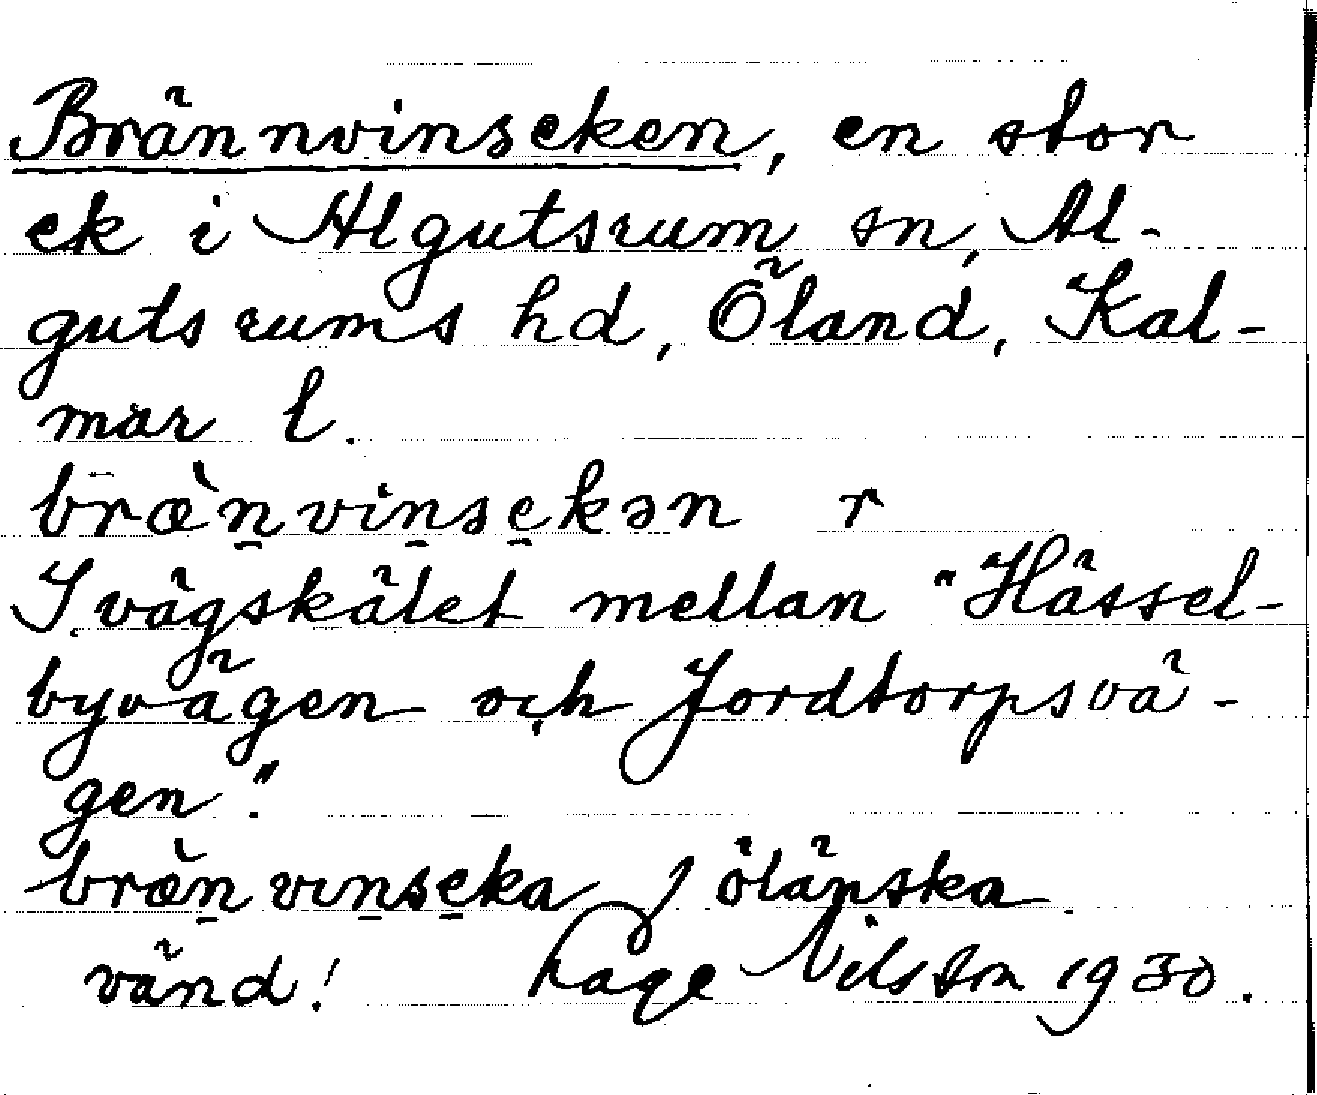 Brännvinseken, en stor
ek i Algutsrum sn, Al-
gutsrums hd, Öland, Kal-
mar l.
bræ̀n̠vin̠se̠kən r
I vägskälet mellan "Hässel-
byvägen och Jordtorpsvä-
gen".
bræ̀n̠vın̠se̠ka / öländska
vänd! Lage Nilsson 1930.